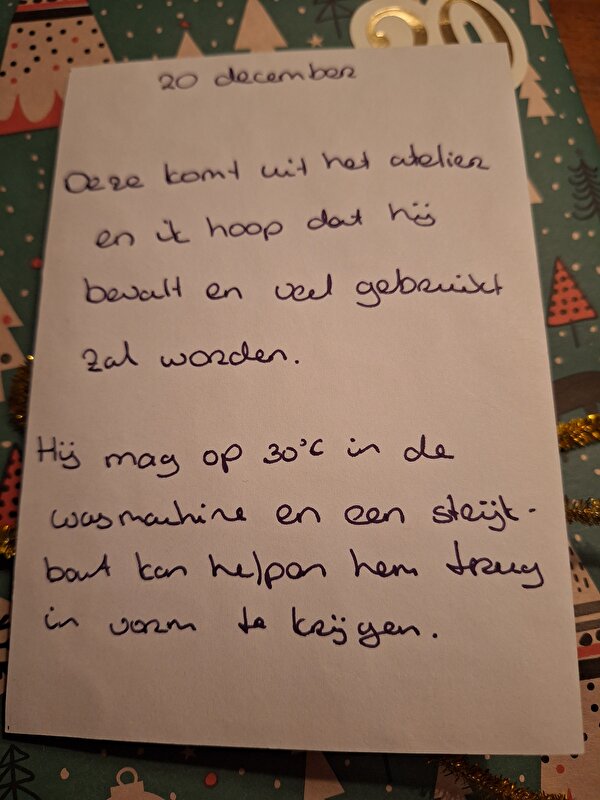 20
20 december
Deze komt uit het atelier
en ik hoop dat hij
bevalt en veel gebruikt
zal worden.
Hij mag op 30°C in de
wasmachine en een strijk-
bout kan helpen hem terug
in vorm te krijgen.